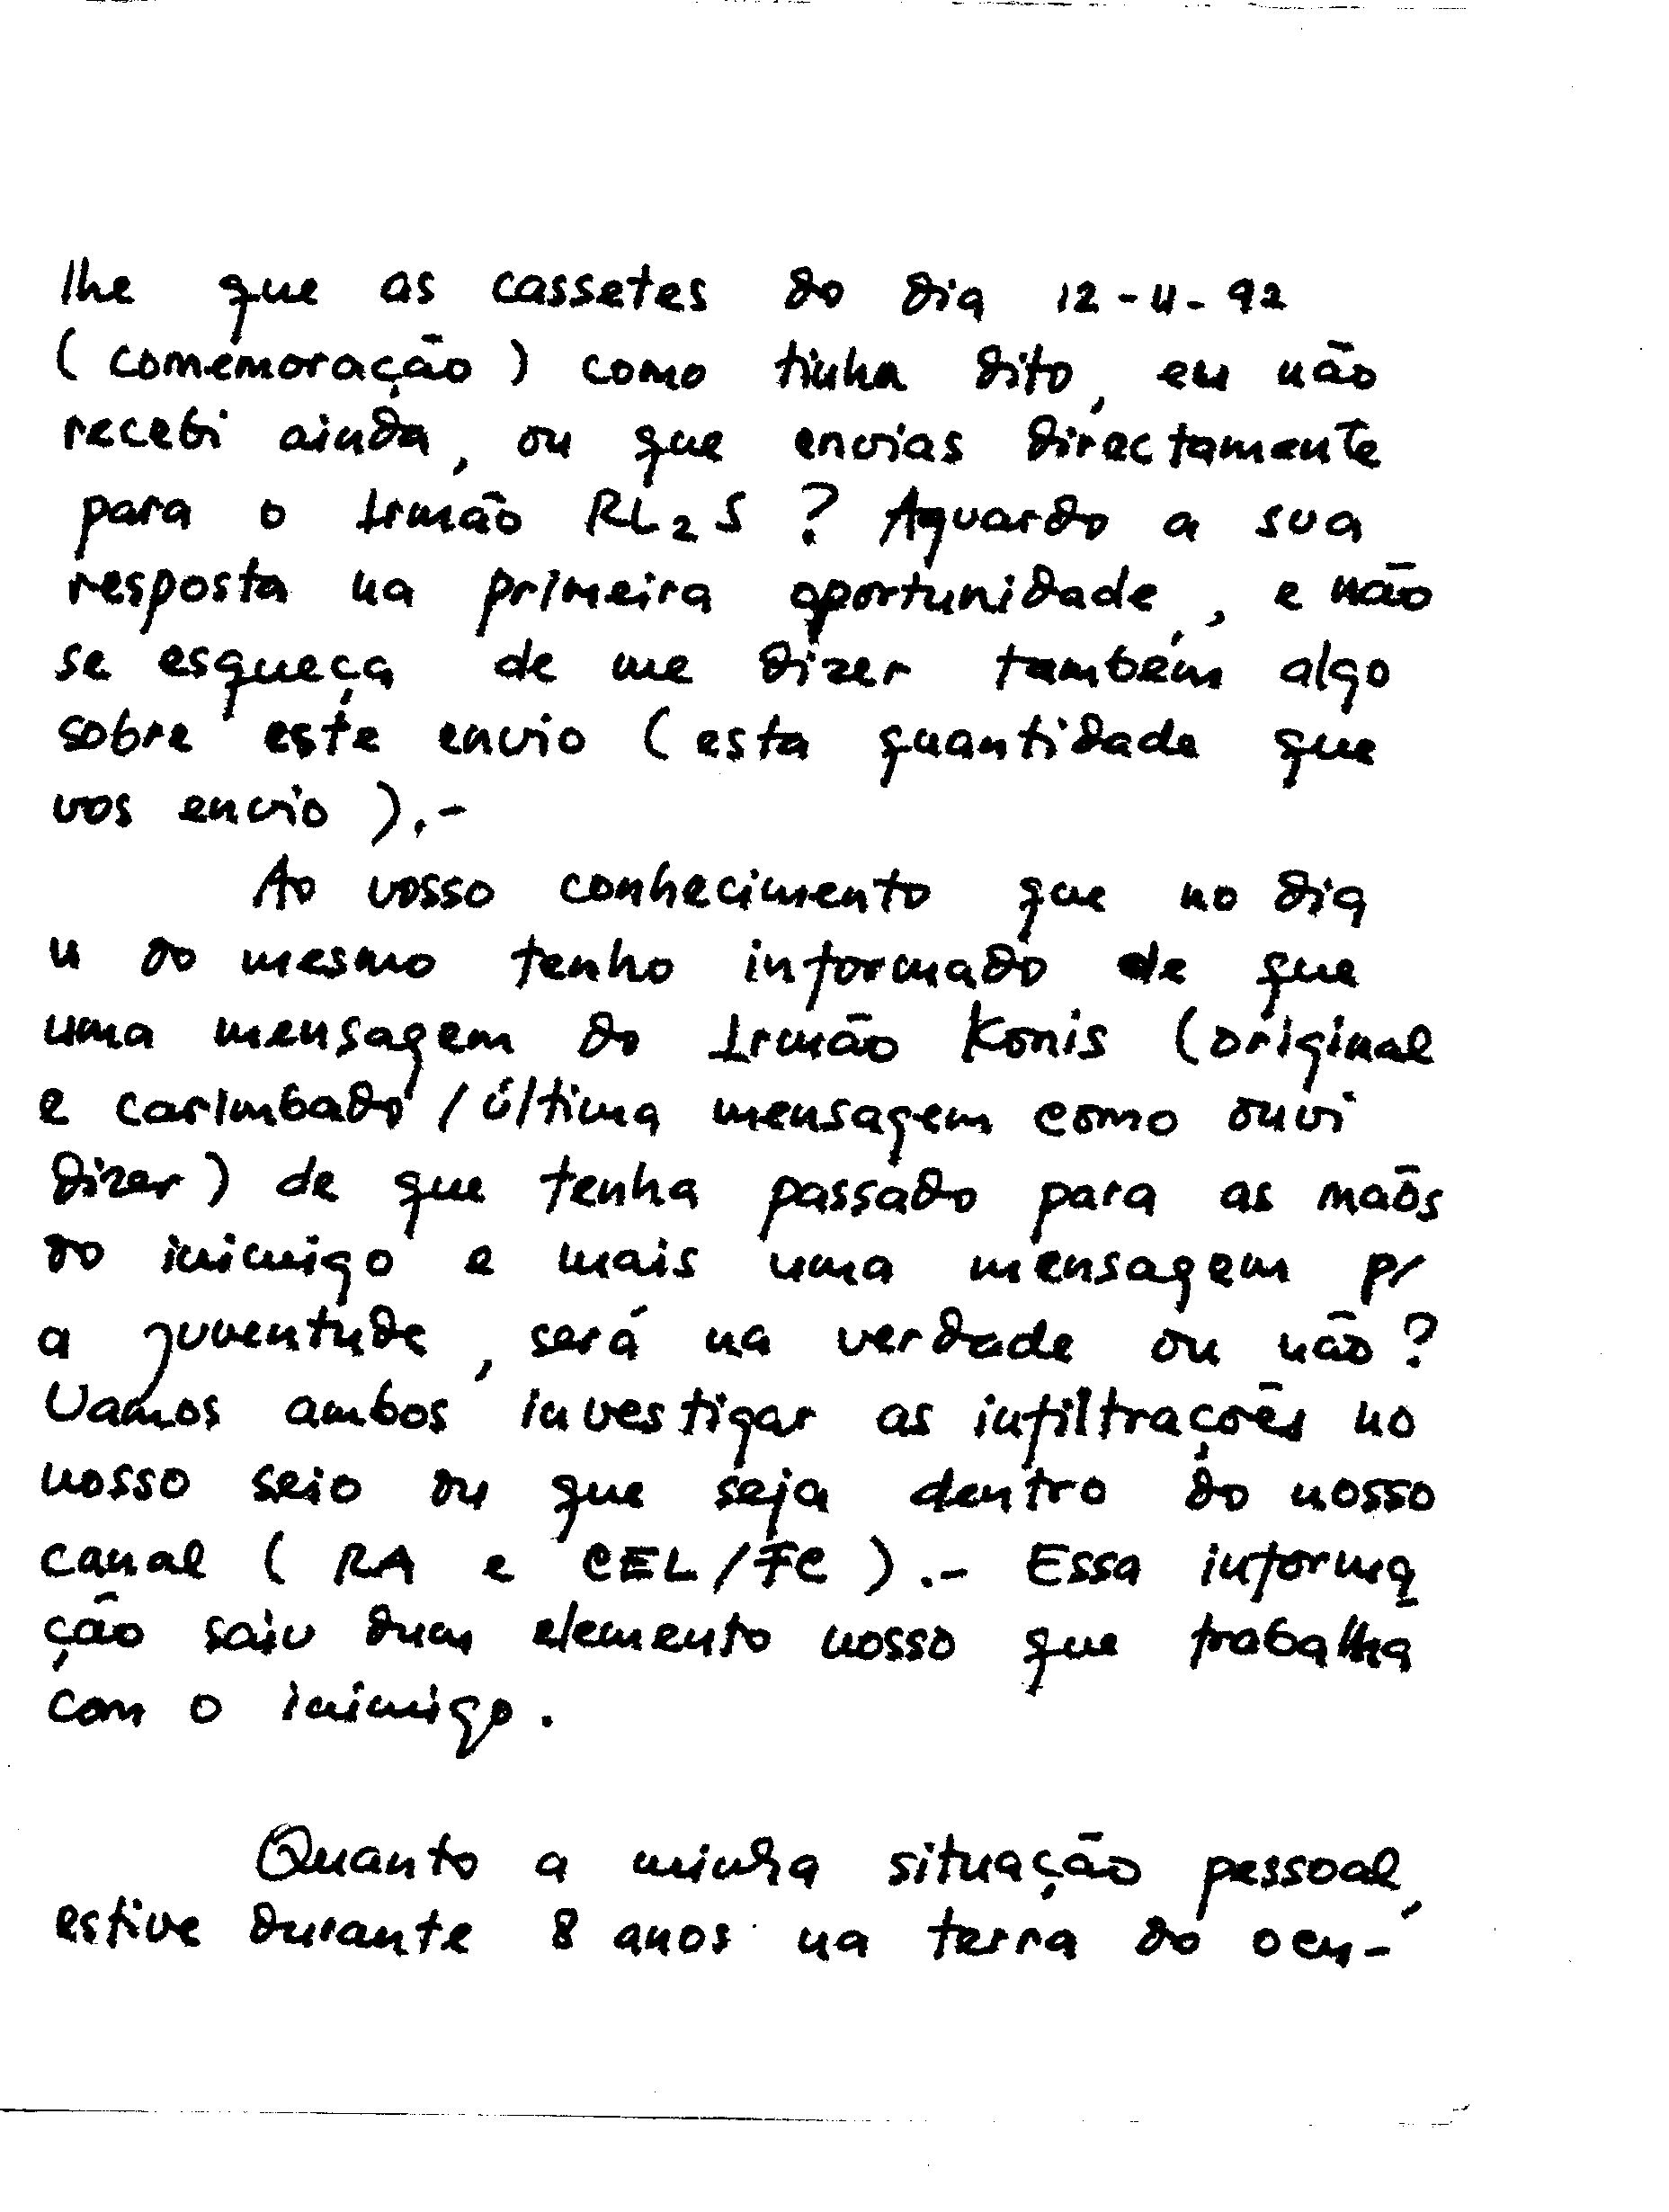 lhe que as cassetes do dia 12-11-92
(comemoração) como tinha dito, eu não
recebi ainda, ou que envias directamente
para o Irmão RL2S ? Aguardo a sua
resposta na primeira oportunidade, e não
se esqueça de me dizer também algo
sobre este envio (esta quantidade que
vos envio ).-
Ao vosso conhecimento que no dia
11 do mesmo tenho informado de que
uma mensagem do Irmão Konis (original
e carimbado / última mensagem como ouvi
dizer) de que tenha passado para as maõs
do inimigo e mais uma mensagem p/
a juventude, será na verdade ou não?
Vamos ambos investigar as infiltrações no
nosso seio ou que seja dentro do nosso
canal ( RA e CEL/FC ).- Essa informa
ção saiu dum elemento nosso que trabalha
com o inimigo.
Quanto a minha situação pessoal,
estive durante 8 anos na terra do ocu-